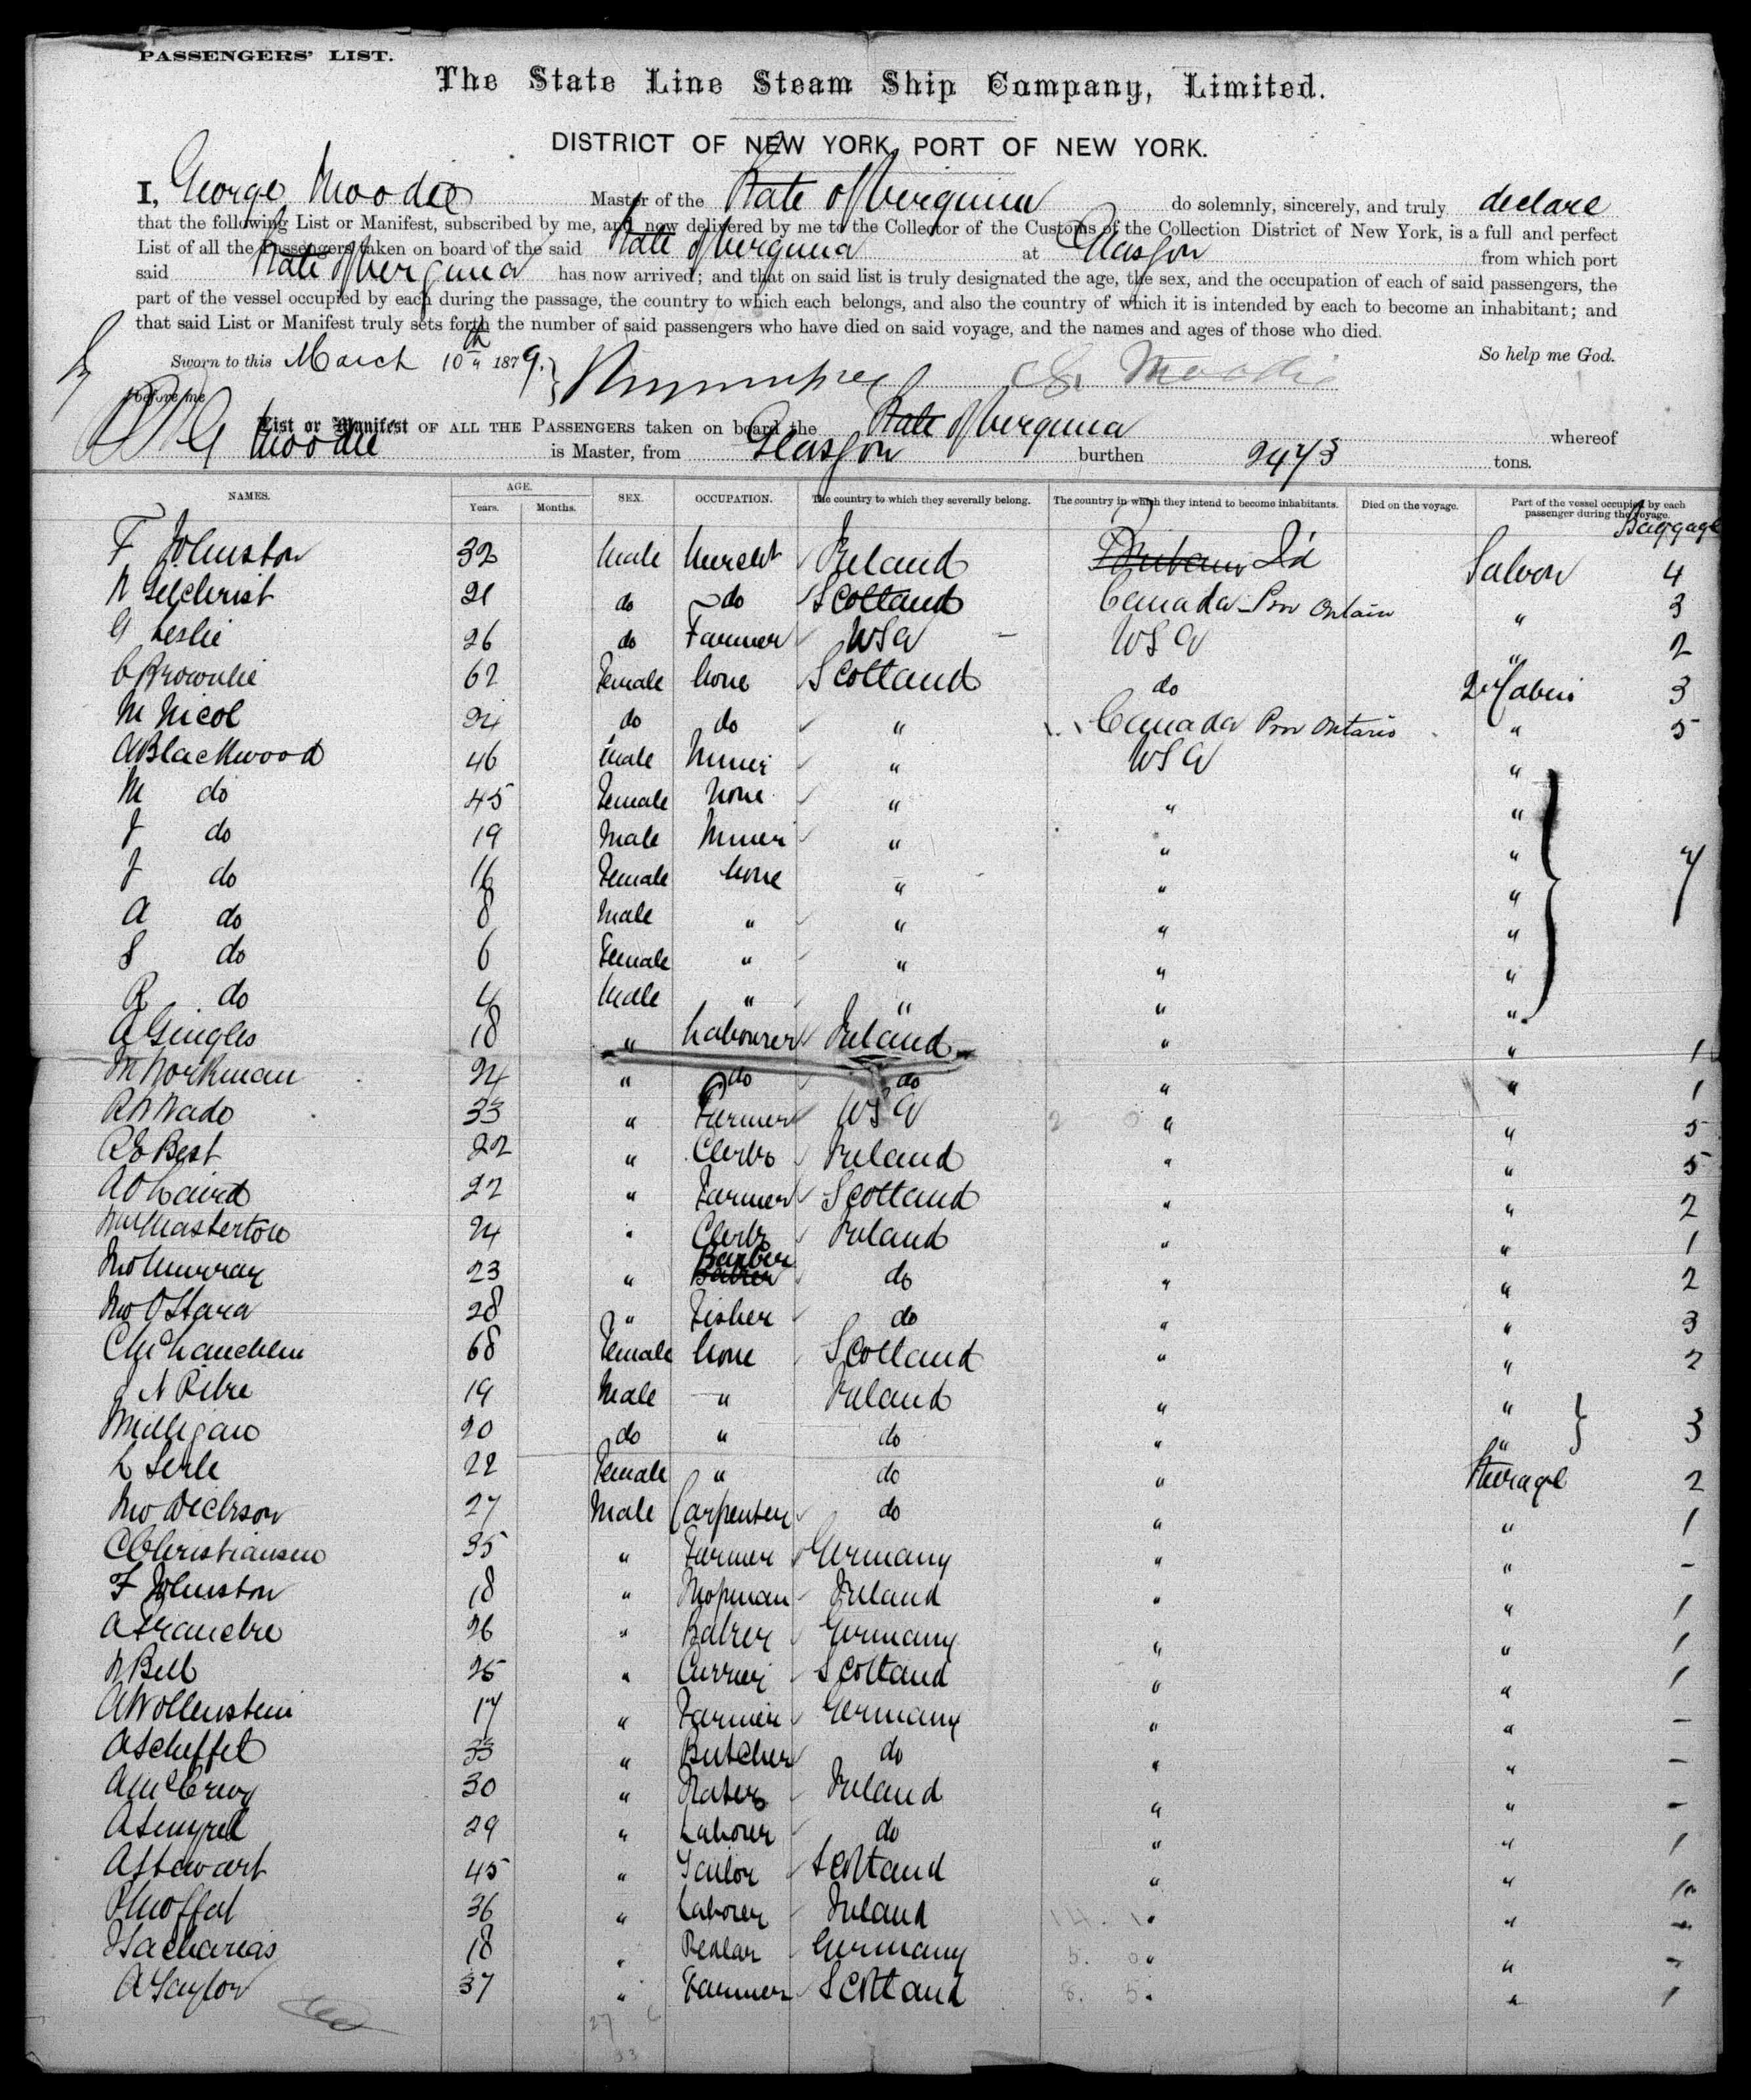 PASSENGERS' LIST.
The State Line Steam Ship Company, Limited.
DISTRICT OF NEW YORK, PORT OF NEW YORK.
I, George Moodie Master of the State of Verginia do solemnly, sincerely, and truly declare
that the following List or Manifest, subscribed by me, and now delivered by me to the Collector of the Customs of the Collection District of New York, is a full and perfect
List of all the Passengers taken on board of the said State of Verginia at Glasgow from which port
said State of Verginia has now arrived; and that on said list is truly designated the age, the sex, and the occupation of each of said passengers, the
part of the vessel occupied by each during the passage, the country to which each belongs, and also the country of which it is intended by each to become an inhabitant; and
that said List or Manifest truly sets forth the number of said passengers who have died on said voyage, and the names and ages of those who died.
Sworn to this March 10th 1879. So help me God.
before me G. Moodie
List or Manifest OF ALL THE PASSENGERS taken on board the State of Verginia whereof
G Moodie is Master, from Glasgow burthen 2473 tons.
NAMES. AGE. Years. Months. SEX. OCCUPATION. The country to which they severally belong. The country in which they intend to become inhabitants. Died on the voyage. Part of the vessel occupied by each passenger during the voyage. Baggage
F Johnston 32 Male Mercht Ireland I'd Saloon 4
N Gilchrist 21 do do Scotland Canada Prov Ontario " 3
G Leslie 26 do Farmer USA USA " 2
C Brownlie 62 Female None Scotland do 2nd Cabin 3
M Nicol 24 do do " Canada Prov Ontario " 5
A Blackwood 46 Male Miner " USA "
M do 45 Female None " " "
J do 19 Male Miner " " "
J do 16 Female None " " " 7
A do 8 Male " " " "
S do 6 Female " " " "
R do 4 Male " " " "
A Gingles 18 " Labourer Ireland " " 1
M Workman 24 " do do " " 1
R W Wado 33 " Farmer USA " " 5
R G Best 22 " Clerk Ireland " " 5
A O Laird 22 " Farmer Scotland " " 2
Wm Masterton 24 " Clerk Ireland " " 1
Jno Murray 23 " Barber do " " 2
Jno O'Hara 28 " Fisher do " " 3
C McLauchlin 68 Female None Scotland " " 2
J N 19 Male " Ireland " "
Milligan 20 do " do " " 3
L Serle 22 Female " do " Steerage 2
Jno Dickson 27 Male Carpenter do " " 1
C Christiansen 35 " Farmer Germany " " -
F Johnston 18 " Shopman Ireland " " 1
A Francke 26 " Baker Germany " " 1
N Bell 25 " Currier Scotland " " 1
A Wollenstein 17 " Farmer Germany " " -
A Scheffel 33 " Butcher do " " -
A McCrevy 30 " Ireland " " -
29 " Laborer do " " 1
A Stewart 45 " Tailor Scotland " " 1
R Moffat 36 " Laborer Ireland " " -
Zacharias 18 " Pedlar Germany " " -
A Taylor 37 " Farmer Scotland " " 1